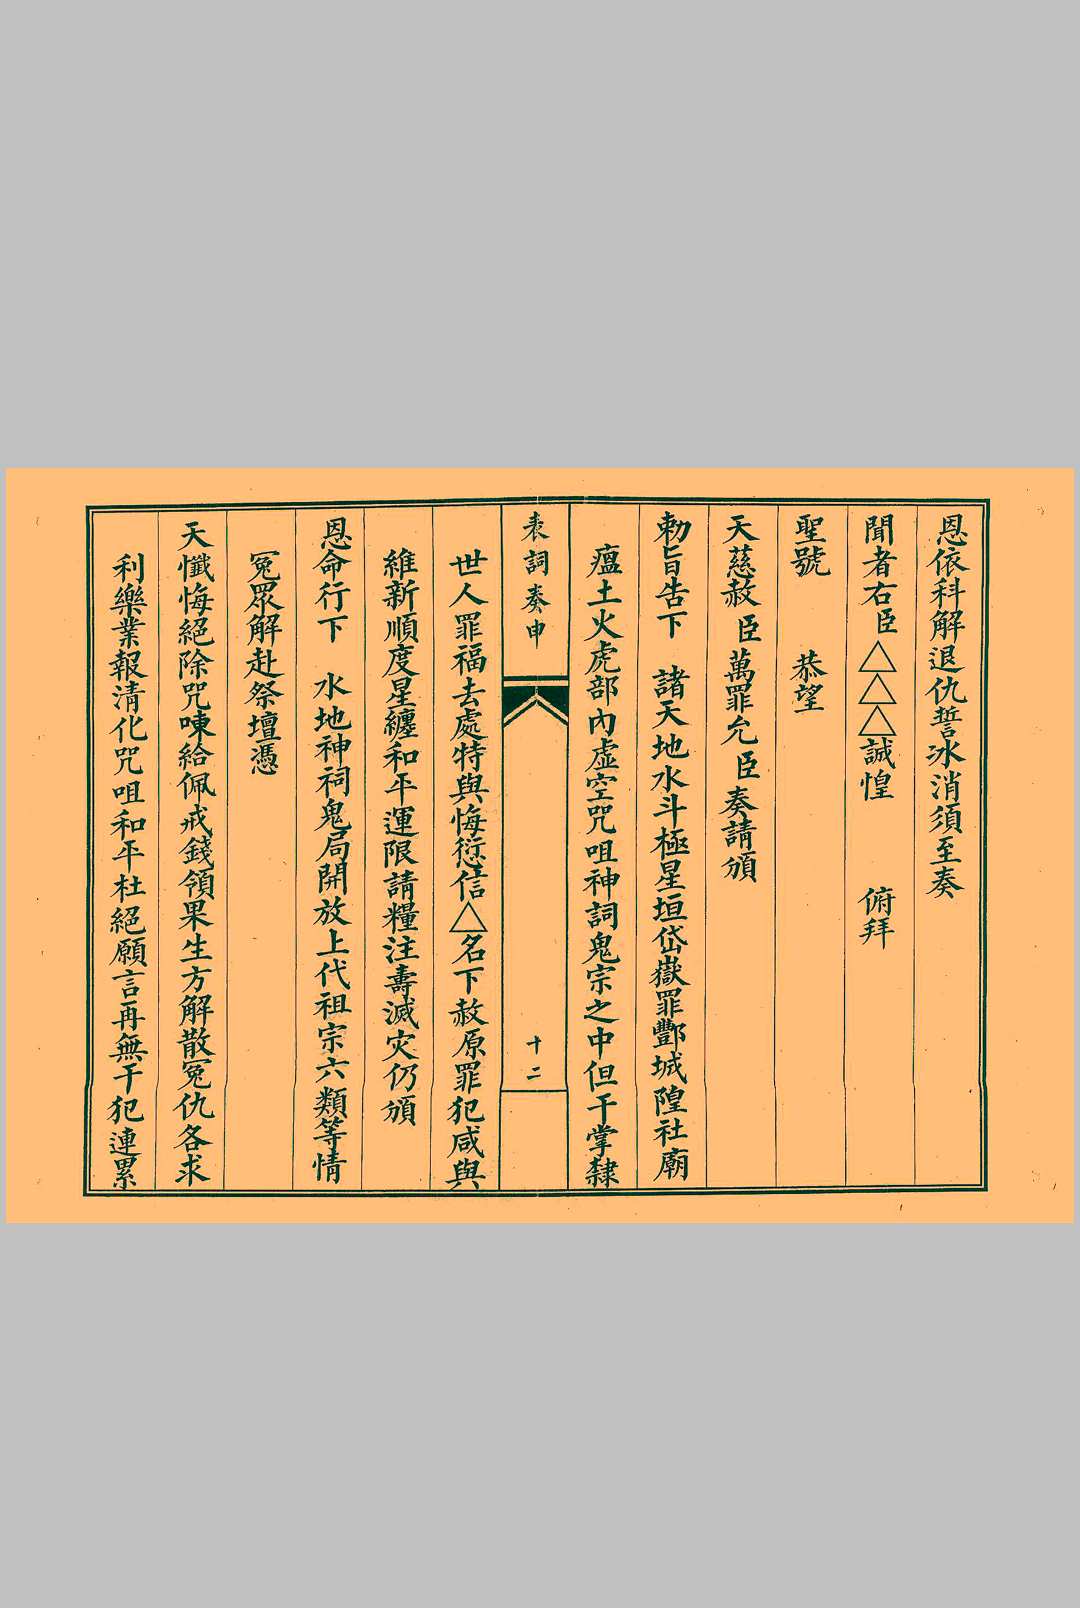 恩依科解退仇誓冰消須至奏
聞者右臣△△△誠惶　　俯拜
聖號　　恭望
天慈赦臣萬罪允臣奏請頒
勅旨告下　諸天地水斗極星垣岱嶽罪酆城隍社廟
瘟土火虎部內虛空咒咀神詞鬼宗之中但干掌隸
表詞奏申
十二
世人罪福去處特與悔愆信△名下赦原罪犯咸與
維新順度星纏和平運限請糧注壽滅灾仍頒
恩命行下　水地神祠鬼局開放上代祖宗六類等情
冤眾解赴祭壇憑
天懺悔絕除咒唻給佩戒錢領果生方解散冤仇各求
利樂業報清化咒咀和平杜絕願言再無干犯連累